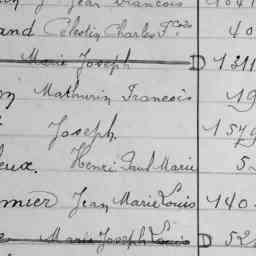 Jean Francois 1041
and Celestin Charles Fcois 40
Marie Joseph D 1311
Mathurin Francois 19
Joseph 1579
eux. Henri Paul Marie 5
mier Jean Marie Louis 140
Marie Joseph Louis D 52